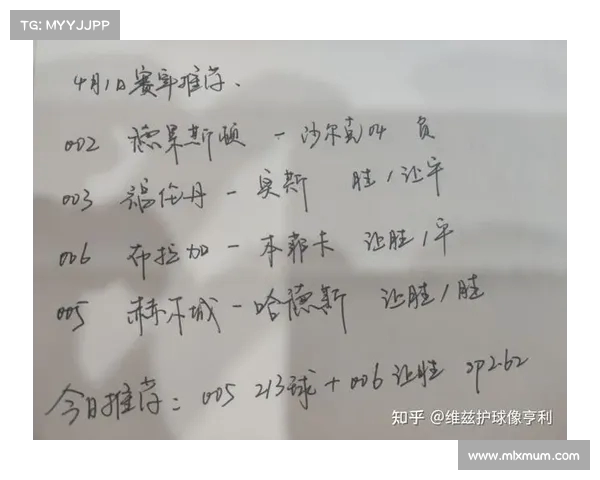 TG: MYYJJPP
4月1日赛事推荐、
002 德累斯顿 - 沙尔克04 负
003 福伦丹 - 奥斯 胜/让平
006 布拉加 - 本菲卡 让胜/平
005 赫尔城 - 哈德斯 让胜/胜
今日推荐: 005 2/3球 + 006 让胜 sp2.62
知乎 @维兹护球像亨利
www.mlxmum.com